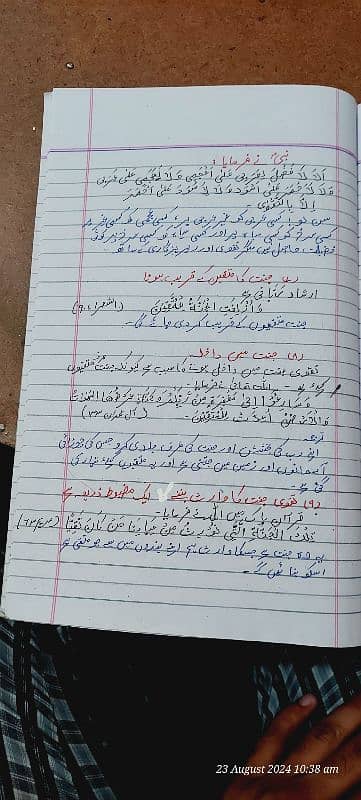 نبیؐ نے فرمایا:
اَلَا لَا فَضْلَ لِعَرَبِیٍّ عَلٰی اَعْجَمِیٍّ وَلَا لِعَجَمِیٍّ عَلٰی عَرَبِیٍّ
وَلَا لِاَحْمَرَ عَلٰی اَسْوَدَ وَلَا لِاَسْوَدَ عَلٰی اَحْمَرَ
اِلَّا بِالتَّقْوٰی
سن لو! کسی عربی کو غیر عربی پر، کسی عجمی کو کسی عربی پر
کسی سرخ کو کسی سیاہ پر اور کسی سیاہ کو کسی سرخ پر کوئی
فضیلت حاصل نہیں مگر تقویٰ اور پرہیزگاری کے ساتھ۔
(۷) جنت کا متقین کے قریب ہونا
ارشاد ربانی ہے
وَاُزْلِفَتِ الْجَنَّةُ لِلْمُتَّقِیْنَ (الشعراء ۹۰)
جنت متقیوں کے قریب کر دی جائے گی۔
(۸) جنت میں داخلہ
تقویٰ جنت میں داخل ہونے کا سبب ہے کیونکہ جنت متقیوں
کیلئے ہے۔ اللہ تعالیٰ نے فرمایا:
وَسَارِعُوْٓا اِلٰی مَغْفِرَةٍ مِّنْ رَّبِّکُمْ وَجَنَّةٍ عَرْضُهَا السَّمٰوٰتُ
وَالْاَرْضُ اُعِدَّتْ لِلْمُتَّقِیْنَ۔ (آل عمران ۱۳۳)
ترجمہ
اپنے رب کی بخشش اور جنت کی طرف جلدی کرو جس کی چوڑائی
آسمانوں اور زمین جتنی ہے اور یہ متقیوں کیلئے تیار کی
گئی ہے۔
(۹) تقویٰ جنت کا وارث بننے کا ایک مضبوط ذریعہ ہے
قرآن پاک میں اللہ نے فرمایا۔
تِلْکَ الْجَنَّةُ الَّتِیْ نُوْرِثُ مِنْ عِبَادِنَا مَنْ کَانَ تَقِیًّا (مریم ۶۳)
یہ وہ جنت ہے جسکا وارث ہم اپنے بندوں میں سے جو متقی ہے
اسکو بنائیں گے۔
23 August 2024 10:38 am